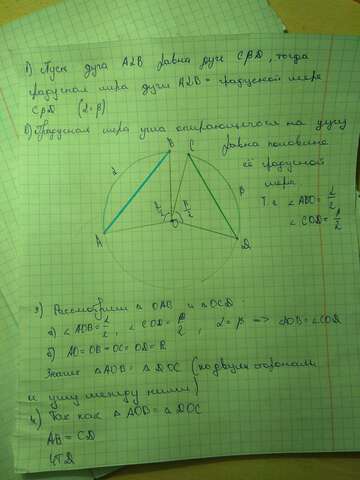 1) Пусть дуга ALB равна дуге CβD, тогда
градусная мера дуги ALB = градусной мере
CβD (α=β)
2) Градусная мера угла опирающегося на дугу
равна половине
её градусной
мере
Т.е. ∠AOB = α/2
∠COD = β/2
B C
α β
α/2 β/2
A O D
3) Рассмотрим △ OAB и △ OCD:
а) ∠AOB = α/2, ∠COD = β/2, α=β => ∠AOB = ∠COD
б) AO=OB=OC=OD=R
Значит △AOB = △DOC (по двум сторонам
и углу между ними)
4) Так как △ AOB = △ DOC
AB = CD
ЧТД